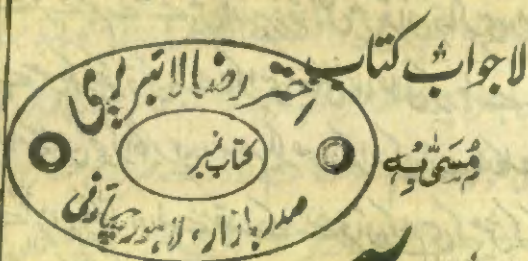 لاجواب کتاب
اختر رضا لائبریری
کتاب نمبر
صدر بازار، لاہور چھاؤنی
مُسَمّٰی بِہٖ